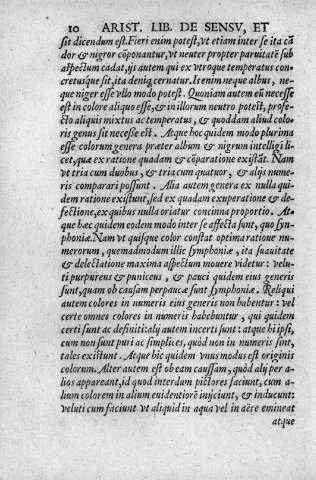 10 ARIST. LIB. DE SENSV, ET
sit dicendum est. Fieri enim potest, vt etiam inter se ita cã
dor & nigror cõponantur, vt neuter propter paruitatẽ sub
aspectum cadat, is autem qui ex vtroque temperatus con-
cretusque sit, ita deniq; cernatur. Is enim neque albus, ne-
que niger esse vllo modo potest. Quoniam autem eũ necesse
est in colore aliquo esse, & in illorum neutro potest, profe-
cto aliquis mixtus ac temperatus, & quoddam aliud colo-
ris genus sit necesse est. Atque hoc quidem modo plurima
esse colorum genera præter album & nigrum intelligi li-
cet, quæ ex ratione quadam & cõparatione existãt. Nam
vt tria cum duobus, & tria cum quatuor, & alijs nume-
ris comparari possunt. Alia autem genera ex nulla qui-
dem ratione existunt, sed ex quadam exuperatione & de-
fectione, ex quibus nulla oriatur concinna proportio. At-
que hæc quidem eodem modo inter se affecta sunt, quo sym-
phoniæ. Nam vt quisque color constat optima ratione nu-
merorum, quemadmodum illic symphoniæ, ita suauitate
& delectatione maxima aspectum mouere videtur: velu-
ti purpureus & puniceus, & pauci quidem eius generis
sunt, quam ob causam perpaucæ sunt symphoniæ. Reliqui
autem colores in numeris eius generis non habentur: vel
certe omnes colores in numeris habebuntur, qui quidem
certi sunt ac definiti: alij autem incerti sunt: atque hi ipsi,
cum non sunt puri ac simplices, quòd non in numeris sint,
tales existunt. Atque hic quidem vnus modus est originis
colorum. Alter autem est ob eam caussam, quòd alij per a-
lios appareant, id quod interdum pictores faciunt, cum a-
lium colorem in alium euidentiorẽ inijciunt, & inducunt:
veluti cum faciunt vt aliquid in aqua vel in aëre emineat
atque